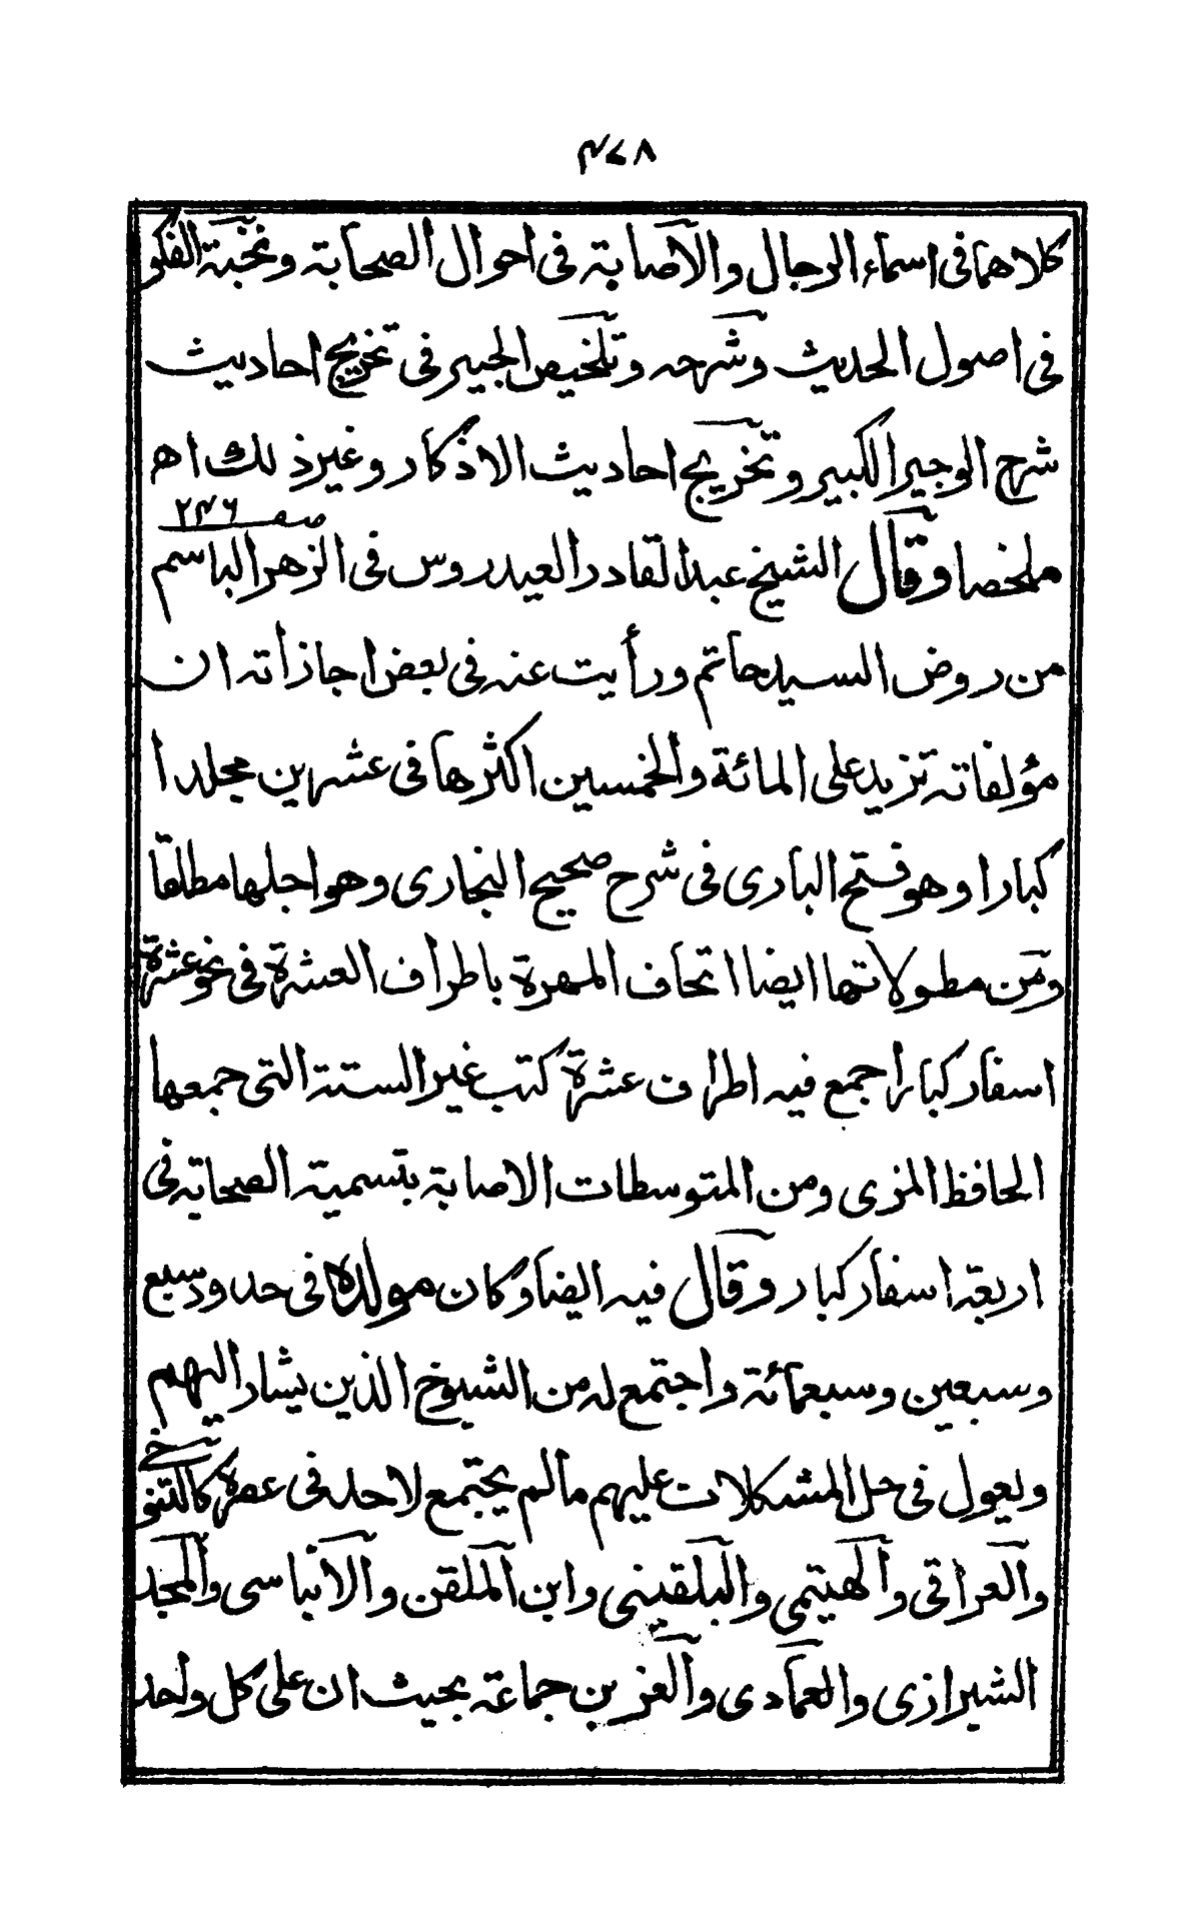 ٤٧٨
كلاهما في اسماء الرجال والاصابة في احوال الصحابة ونخبة الفكر
في اصول الحديث وشرحه وتلخيص الجبير في تخريج احاديث
شرح الوجيز الكبير وتخريج احاديث الاذكار وغير ذلك اه
صـ ٢٤٦
ملخصا وقال الشيخ عبد القادر العيدروس في الزهر الباسم
من روض السيد حاتم ورأيت عنه في بعض اجازاته ان
مؤلفاته تزيد على المائة والخمسين اكثرها في عشرين مجلدا
كبارا وهو فتح الباري في شرح صحيح البخاري وهو اجلها مطلقا
ومن مطولاتها ايضا اتحاف المهرة باطراف العشرة في نحو عشرة
اسفار كبارا جمع فيه اطراف عشرة كتب غير الستة التي جمعها
الحافظ المزي ومن المتوسطات الاصابة بتسمية الصحابة في
اربعة اسفار كبار وقال فيه ايضا وكان مولده في حدود سبع
وسبعين وسبعمائة واجتمع له من الشيوخ الذين يشار اليهم
ويعول في حل المشكلات عليهم مالم يجتمع لاحد في عصره كالتنوخي
والعراقي والهيتمي والبلقيني وابن الملقن والانباسي والمجد
الشيرازي والعمادي والعز بن جماعة بحيث ان على كل واحد